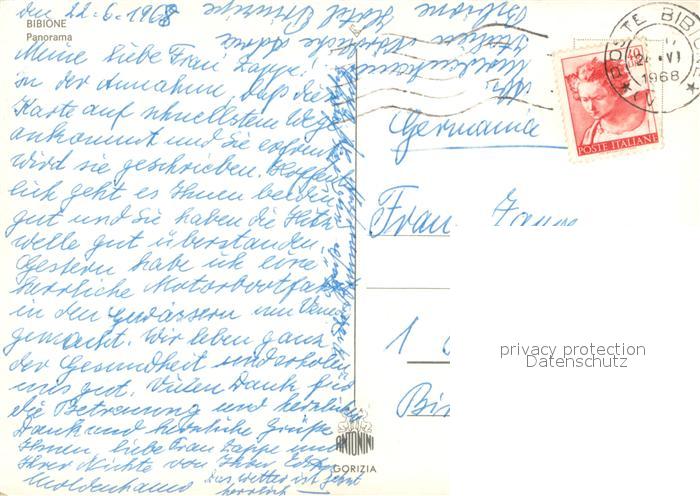 BIBIONE
Panorama
den 22.6.1968
Meine liebe Frau Zappe!
in der Annahme, daß die
Karte auf schnellstem Wege
ankommt und Sie erfreut
wird sie geschrieben. Hoffent-
lich geht es Ihnen beiden
gut und Sie haben die Hitze
welle gut überstanden.
Gestern habe ich eine
herrliche Motorbootfahrt
in den Gewässern um Vene
gemacht. Wir leben ganz
der Gesundheit und erholen
uns gut. Vielen Dank für
die Betreuung und herzlichen
Dank und herzliche Grüße
Ihnen, liebe Frau Zappe und
Ihrer Nichte von Ihrer
Moldenhauer
Das Wetter ist jetzt
herrlich
Bibione
Italien
Moldenhauer
POSTE BIBIONE
1968
POSTE ITALIANE
Germania
Frau Zappe
1
privacy protection
Datenschutz
ANTONINI
GORIZIA